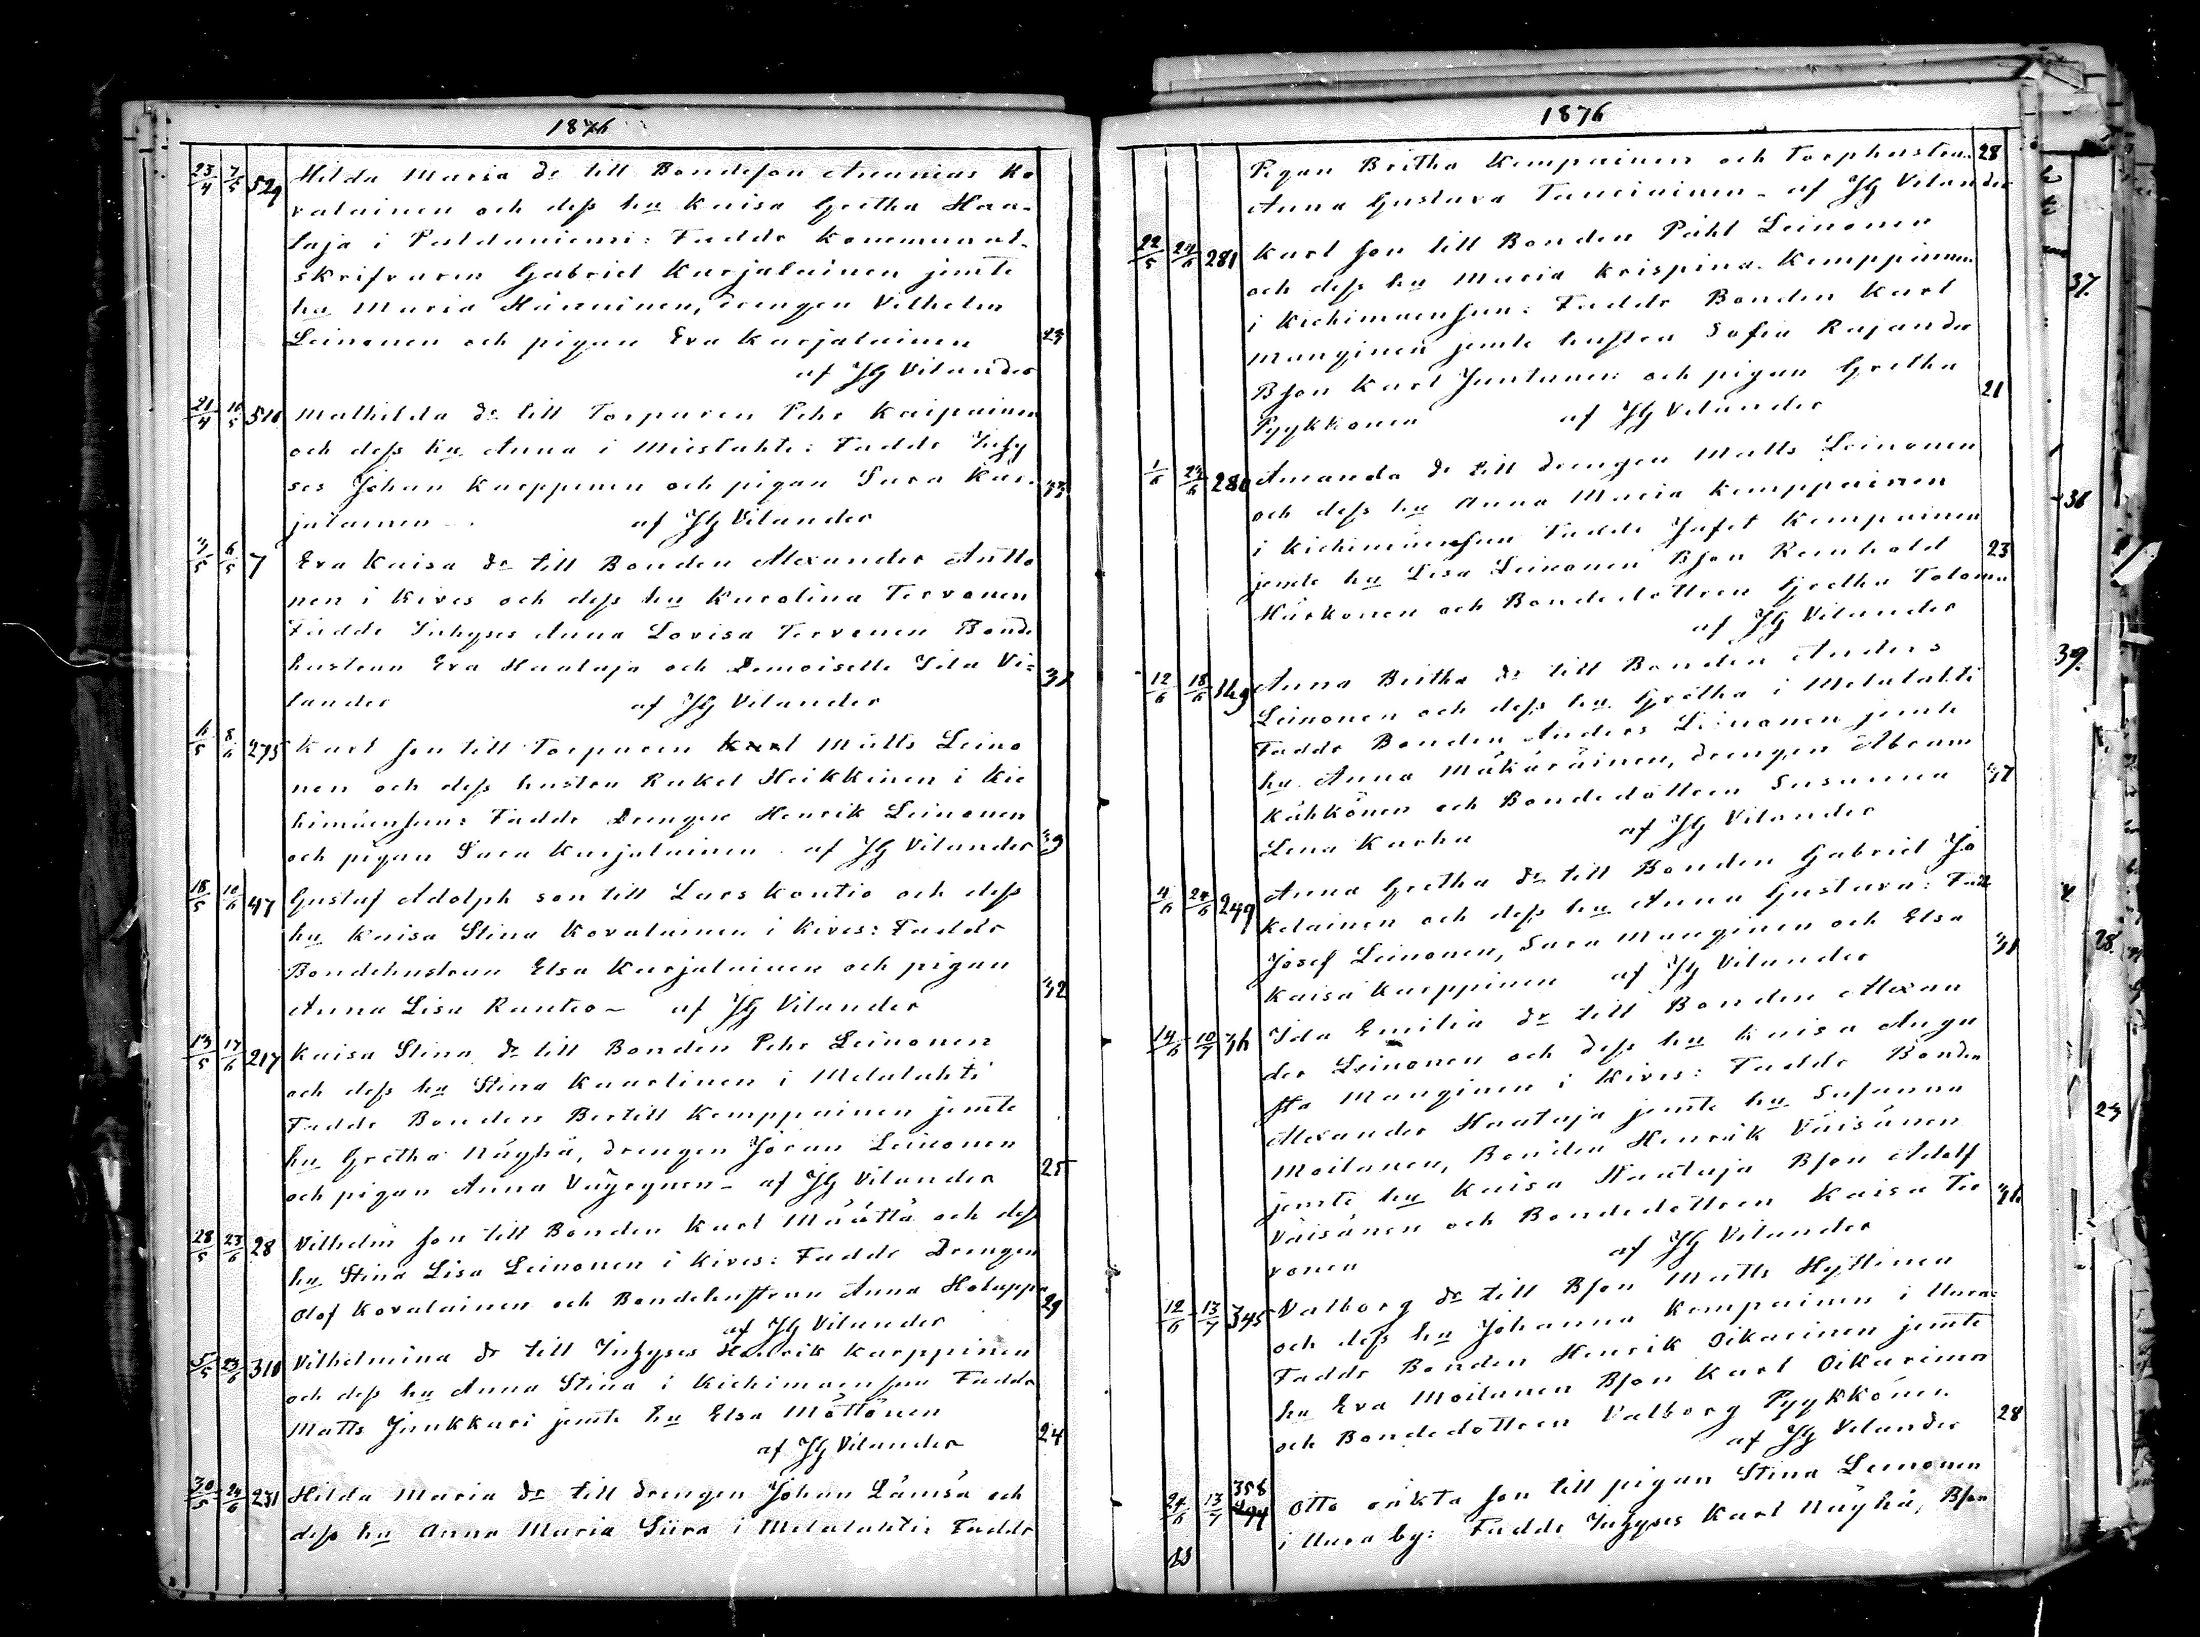 1876
23/4 7/5 529 Hilda Maria dr till Bondeson Ananias Ko
valainen och dess hu Kaisa Gretha Haa-
taja i Paldaniemi: Faddr Kommunal-
skrifvaren Gabriel Karjalainen jemte
hu Maria Hänninen, drengen Vilhelm
Leinonen och pigan Eva Karjalainen 23
af JG Vilander
21/4 16/5 510 Mathilda dr till Torparen Pehr Kaipainen
och dess hu Anna i Mieslahti: Faddr Inhy
ses Johan Karppinen och pigan Sara Kar- 33
jalainen af JG Vilander
3/5 6/5 7 Eva Kaisa dr till Bonden Alexander Antto
nen i Kives och dess hu Karolina Tervonen
Faddr Inhyses Anna Lovisa Tervonen Bonde
hustrun Eva Haataja och Demoiselle Iida Vi- 31
lander af JG Vilander
6/5 8/6 275 Karl son till Torparen Karl Matts Leino
nen och dess hustru Rakel Heikkinen i Kie
himäensuu: Faddr Drengen Henrik Leinonen
och pigan Sara Karjalainen af JG Vilander 39
18/5 10/6 47 Gustaf Adolph son till Lars Kontio och dess
hu Kaisa Stina Kovalainen i Kives: Faddr
Bondehustrun Elsa Karjalainen och pigan
Anna Lisa Rautio - af JG Vilander 32
13/5 17/6 217 Kaisa Stina dr till Bonden Pehr Leinonen
och dess hu Stina Kaarlinen i Melalahti
Faddr Bonden Bertill Kemppainen jemte
hu Gretha Näyhä, drengen Jöran Leinonen
och pigan Anna Väyrynen - af JG Vilander 25
28/5 23/6 28 Vilhelm son till Bonden Karl Määttä och dess
hu Stina Lisa Leinonen i Kives: Faddr Drengen
Olof Kovalainen och Bondehustrun Anna Holappa 29
af JG Vilander
5/5 23/6 310 Vilhelmina dr till Inhyses Henrik Karppinen
och dess hu Anna Stina i Kiehimaensuu Faddr
Matts Junkkari jemte hu Elsa Möttönen 24
af JG Vilander
30/5 24/6 231 Hilda Maria dr till drengen Johan Lämsä och
dess hu Anna Maria Siira i Melalahti: Faddr
1876
Pigan Britha Kempainen och torphustrun 28
Anna Gustava Tauriainen - af JG Vilander
22/5 24/6 281 Karl son till Bonden Påhl Leinonen
och dess hu Maria Krispina Kemppinen
i Kiehimaensuu: Faddr Bonden Karl
Manginen jemte hustru Sofia Rajander
Bson Karl Juntunen och pigan Gretha 21
Pyykkonen af JG Vilander
1/6 24/6 280 Amanda dr till drengen Matts Leinonen
och dess hu Anna Maria Kemppainen
i Kiehimäensuu Faddr Jafet Kempainen
jemte hu Lisa Leinonen Bson Reinhold 23
Härkonen och Bondedottren Gretha Tolonen
af JG Vilander
12/6 18/6 169 Anna Britha dr till Bonden Anders
Leinonen och dess hu Gretha i Melalahti
Faddr Bonden Anders Leinonen jemte
hu Anna Mäkäräinen, drengen Abram
Kähkönen och Bondedottren Susanna 37
Lena Karhu af JG Vilander
4/6 24/6 249 Anna Gretha dr till Bonden Gabriel Jo
kelainen och dess hu Anna Gustava: Faddr
Josef Leinonen, Sara Manginen och Elsa 31
Kaisa Karppinen af JG Vilander
14/6 10/7 36 Ida Emilia dr till Bonden Alexan
der Leinonen och dess hu Kaisa Augu
sta Manginen i Kives: Faddr Bonden
Alexander Haataja jemte hu Susanna
Moilanen, Bonden Henrik Väisänen
jemte hu Kaisa Haataja Bson Adolf
Väisänen och Bondedottren Kaisa Ter 36
vonen af JG Vilander
12/6 13/7 345 Valborg dr till Bson Matts Hyttinen
och dess hu Johanna Kempainen i Uura:
Faddr Bonden Henrik Oikarinen jemte
hu Eva Moilanen Bson Karl Oikarinen
och Bondedottren Valborg Pyykkönen 28
af JG Vilander
24/6 13/7 358 Otto oäkta son till pigan Stina Leinonen
i Uura by: Faddr Inhyses Karl Näyhä, Bson
37.
36
39.
28.
23